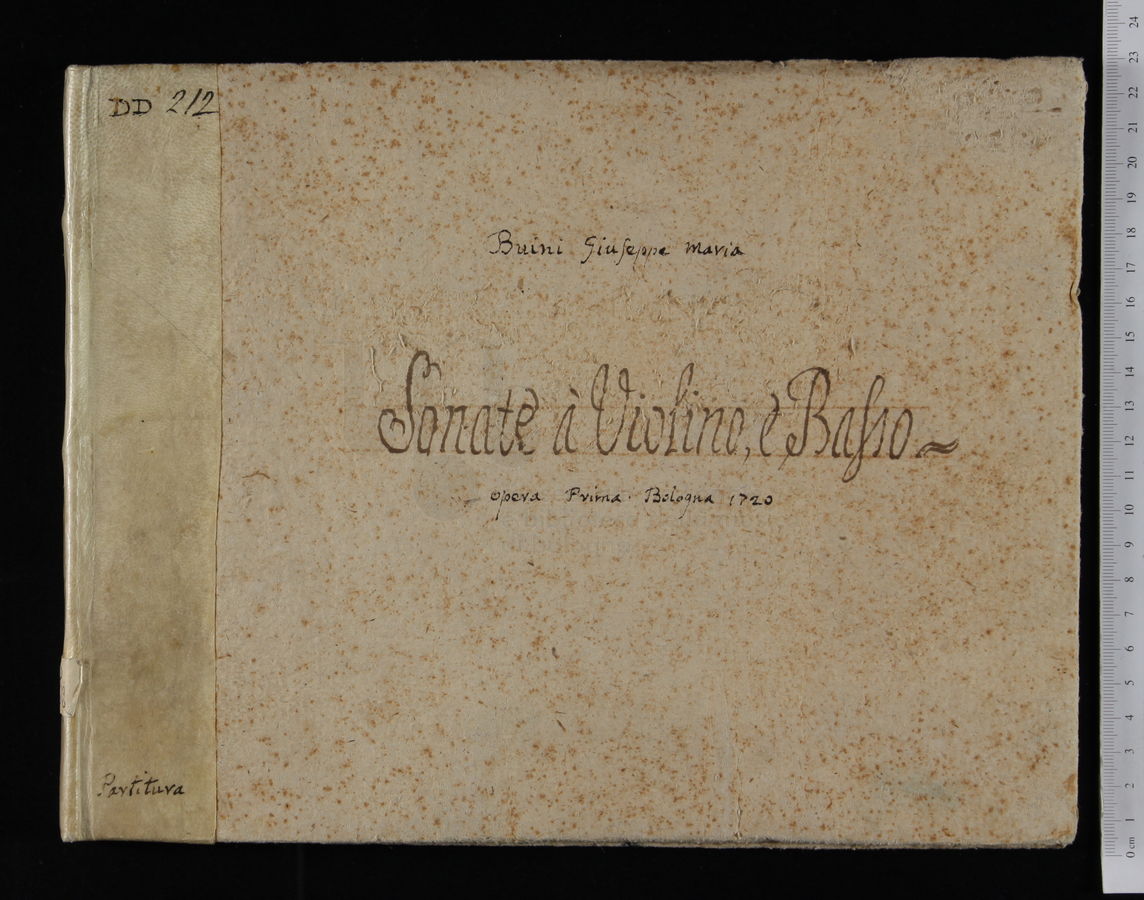 DD 212
Buini Giuseppe Maria
Sonate à Violino, è Basso
opera Prima. Bologna 1720
Partitura
24
23
22
21
20
19
18
17
16
15
14
13
12
11
10
9
8
7
6
5
4
3
2
1
0 cm